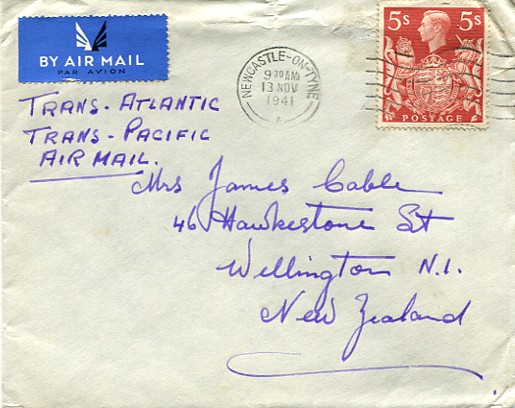 BY AIR MAIL
PAR AVION
5s 5s
POSTAGE
NEWCASTLE-ON-TYNE
9 30 AM
13 NOV
1941
A
TRANS-ATLANTIC
TRANS-PACIFIC
AIR MAIL.
Mrs James Cable
46 Hawkestone St
Wellington N.1.
New Zealand